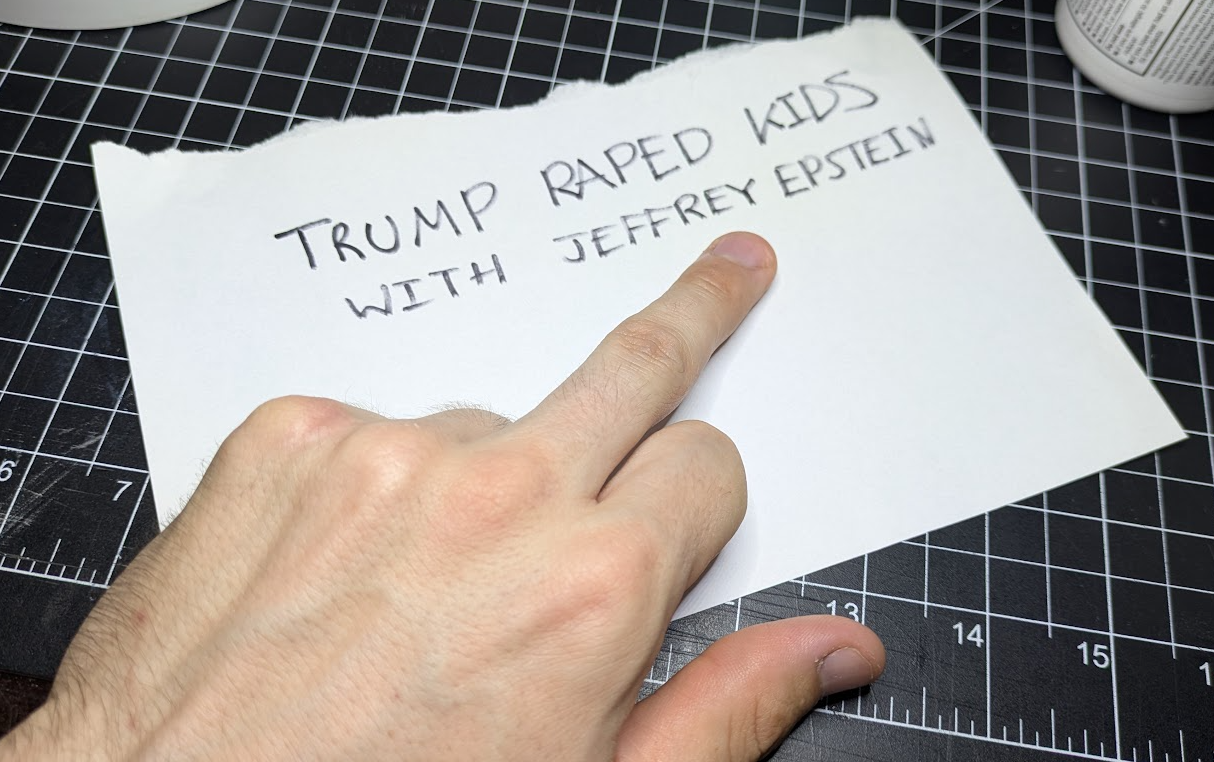 TRUMP RAPED KIDS
WITH JEFFREY EPSTEIN
6
7
13
14
15